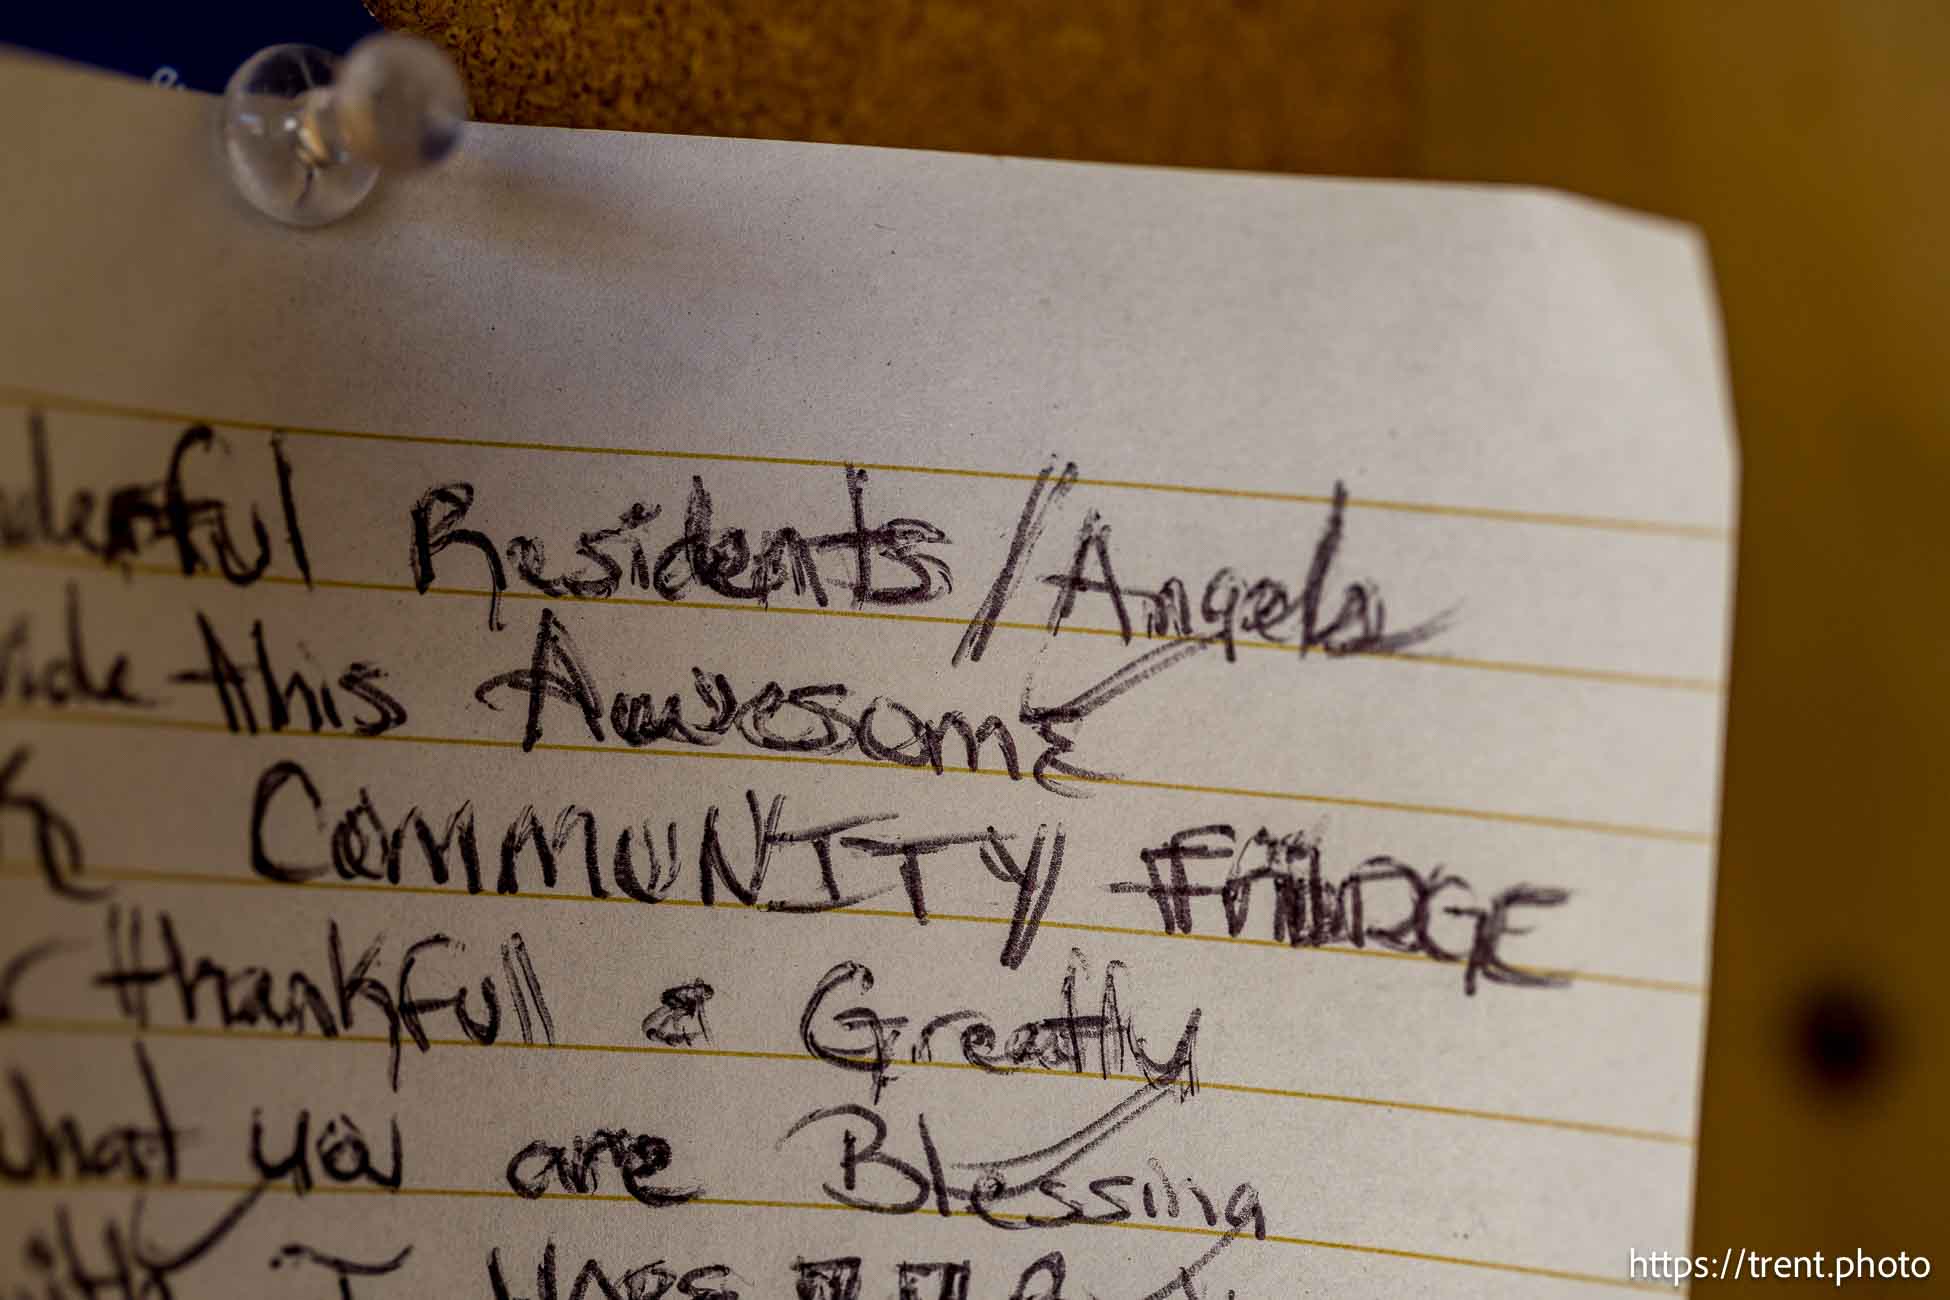 derful Residents/Angels
vide this AwesomE
COMMUNITY FRIDGE
thankfull & Greatly
what you are Blessing
with I
https://trent.photo